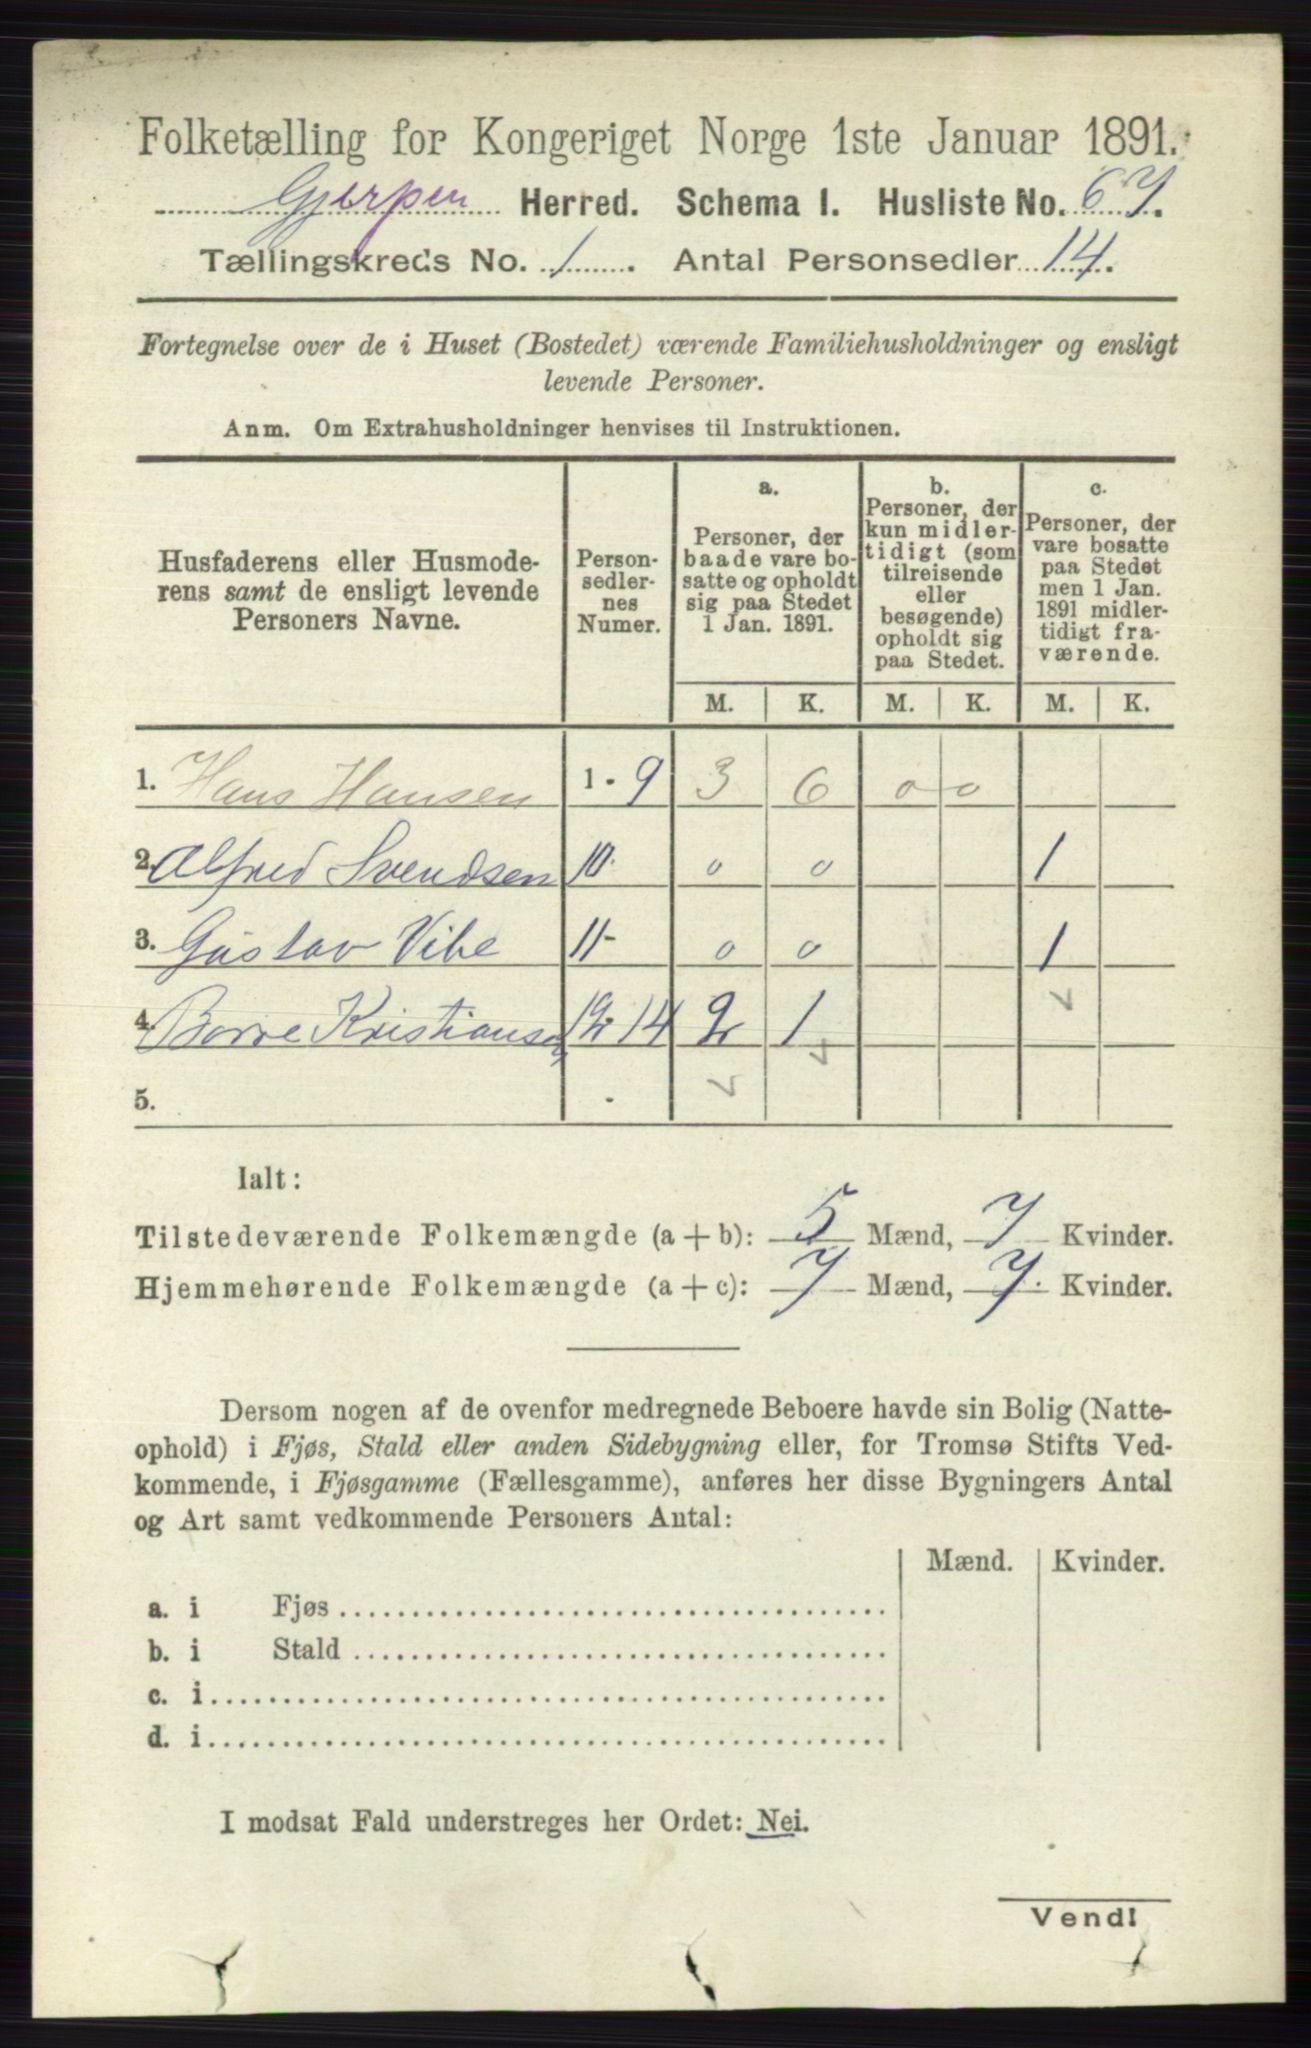 Folketælling for Kongeriget Norge 1ste Januar 1891.
Gjerpen Herred. Schema 1. Husliste No. 67.
Tællingskreds No. 1. Antal Personsedler 14.
Fortegnelse over de i Huset (Bostedet) værende Familiehusholdninger og ensligt
levende Personer.
Anm. Om Extrahusholdninger henvises til Instruktionen.
Husfaderens eller Husmode-
rens samt de ensligt levende
Personers Navne.
Person-
sedler-
nes
Numer.
a.
Personer, der
baade vare bo-
satte og opholdt
sig paa Stedet
1 Jan. 1891.
b.
Personer, der
kun midler-
tidigt (som
tilreisende
eller
besøgende)
opholdt sig
paa Stedet.
c.
Personer, der
vare bosatte
paa Stedet
men 1 Jan.
1891 midler-
tidigt fra-
værende.
M. K. M. K. M. K.
1. Hans Hansen 1 - 9 3 6 0 0
2. Alfred Svendsen 10. 0 0 1
3. Gustav Vibe 11- 0 0 1
4. Borre Kristiansen 12- 14 2 1
5. -
Ialt:
Tilstedeværende Folkemængde (a + b): 5 Mænd, 7 Kvinder.
Hjemmehørende Folkemængde (a + c): 7 Mænd, 7. Kvinder.
Dersom nogen af de ovenfor medregnede Beboere havde sin Bolig (Natte-
ophold) i Fjøs, Stald eller anden Sidebygning eller, for Tromsø Stifts Ved-
kommende, i Fjøsgamme (Fællesgamme), anføres her disse Bygningers Antal
og Art samt vedkommende Personers Antal:
Mænd. Kvinder.
a. i Fjøs
b. i Stald
c. i
d. i
I modsat Fald understreges her Ordet: Nei.
Vend!